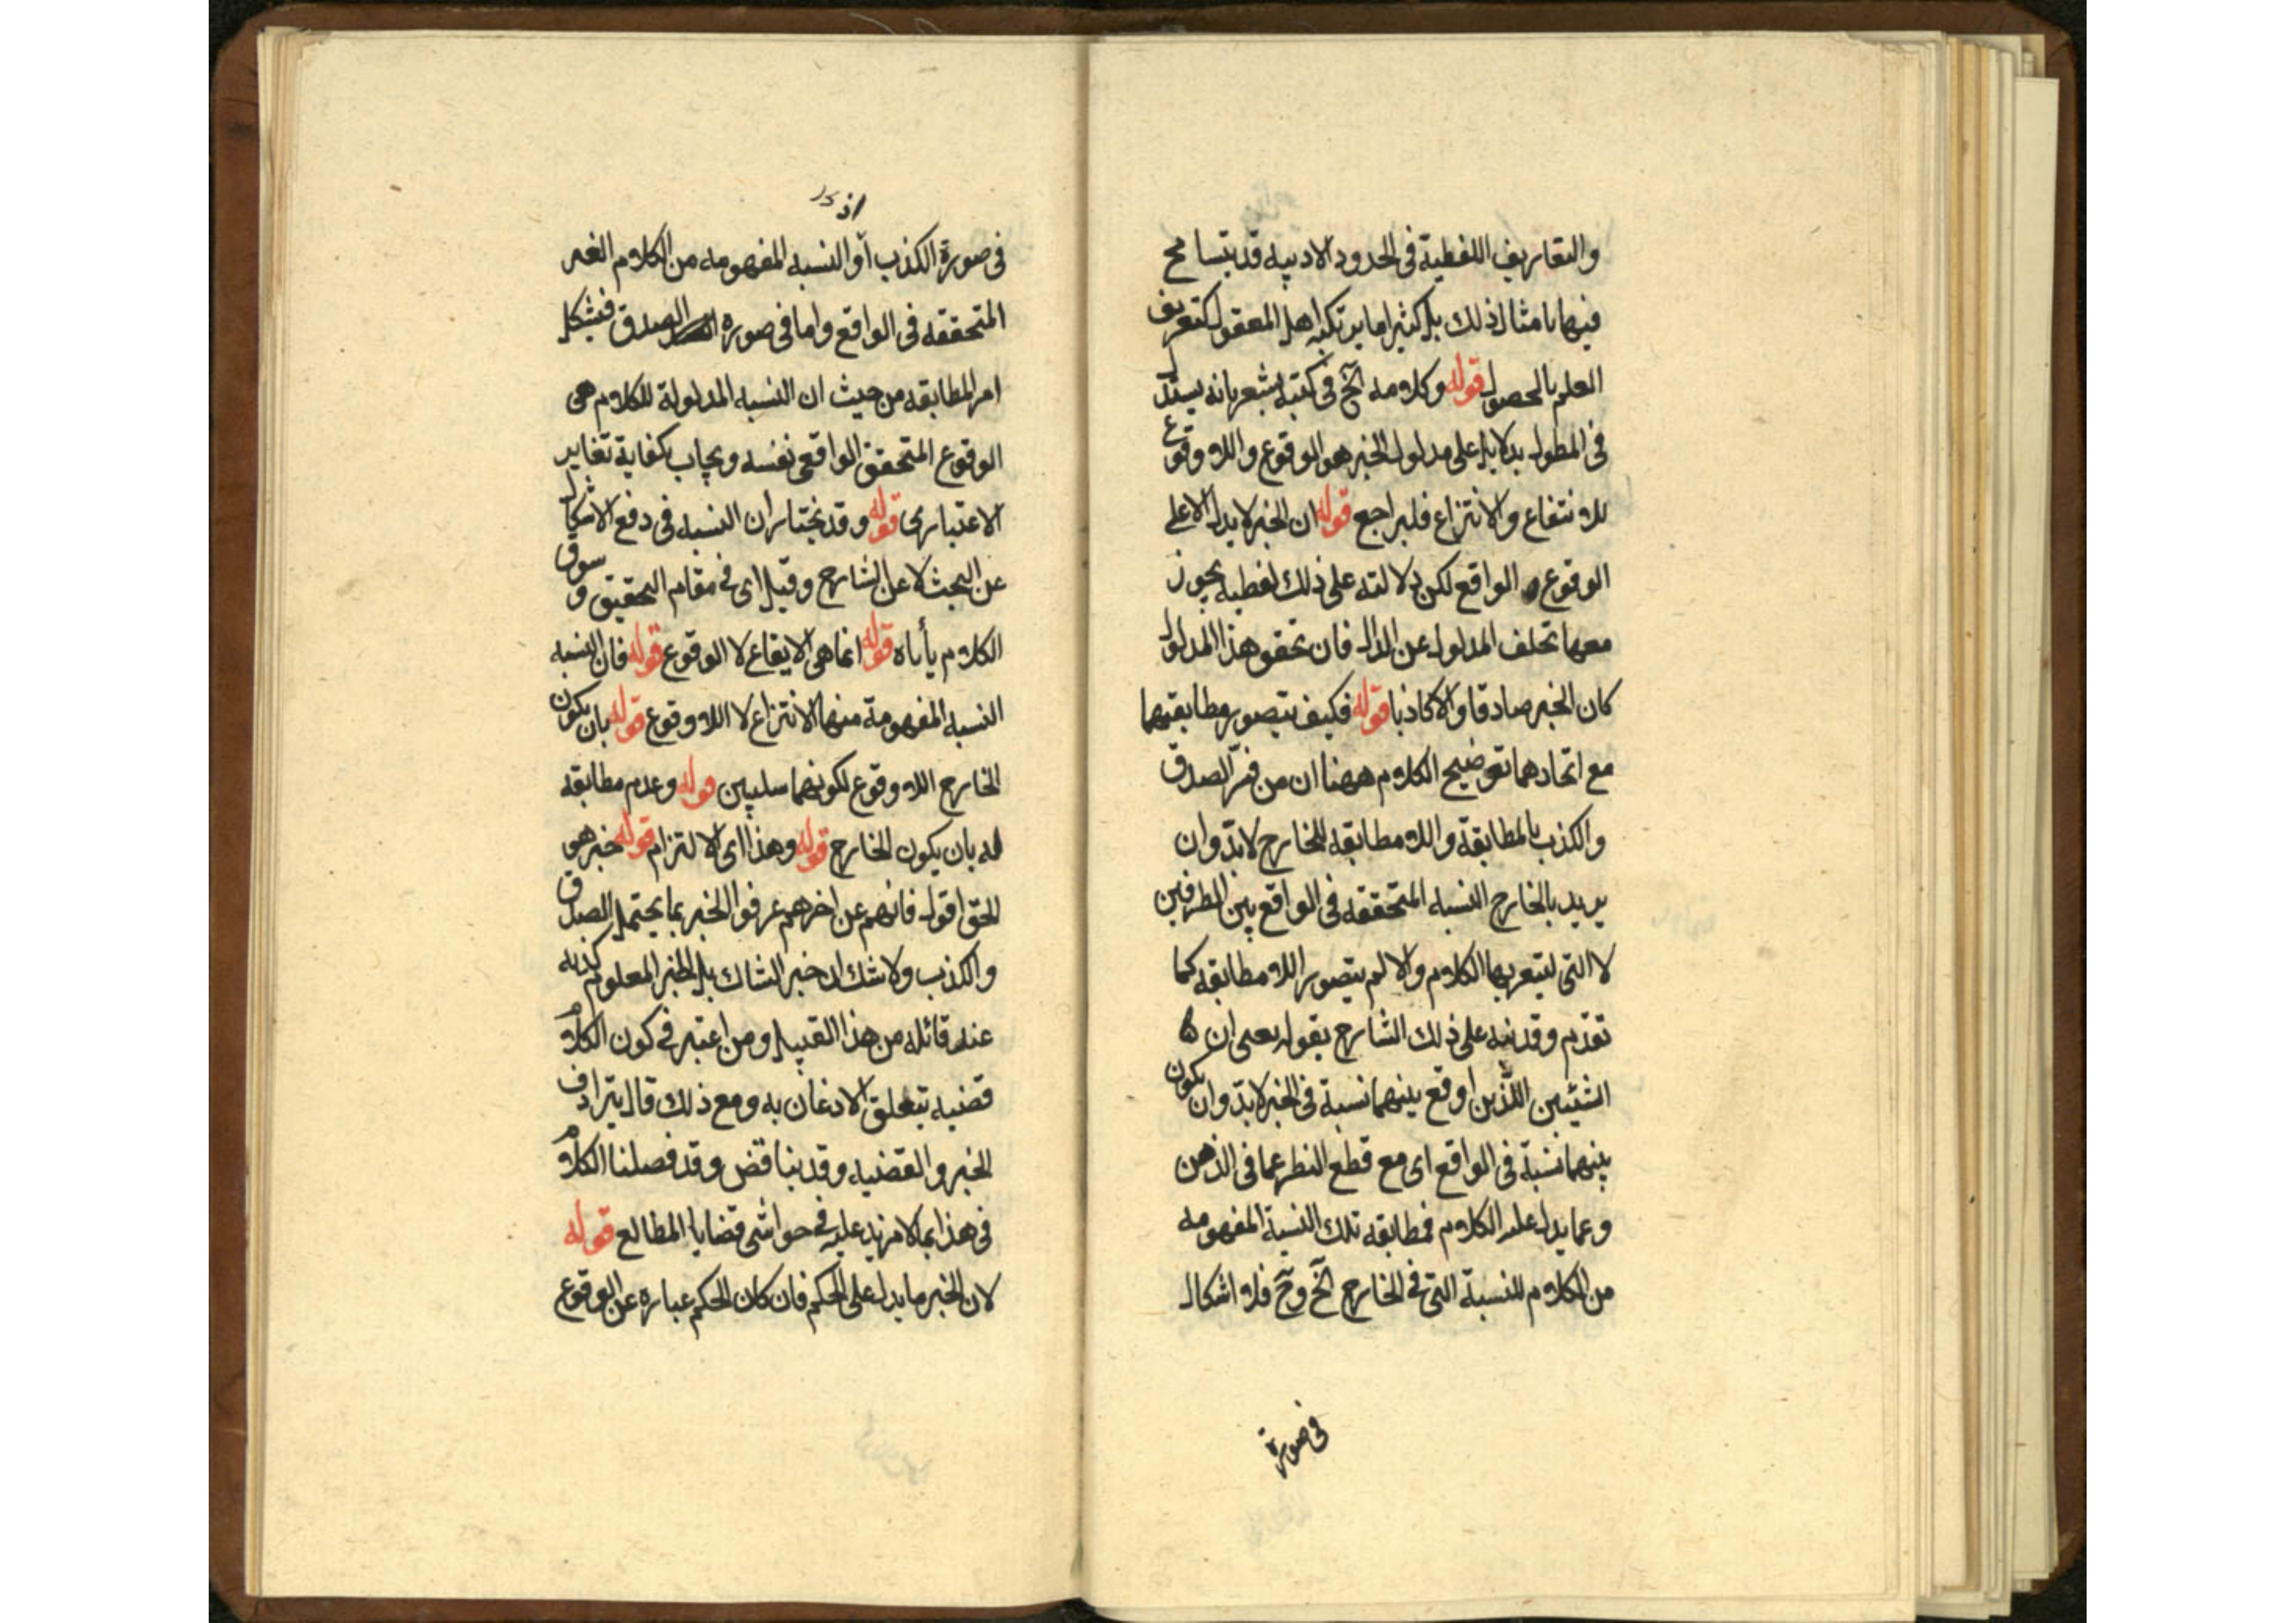 والتعاريف اللفظية في الحدود الادبيه قد يتسامح
فيها بامثال ذلك بل كثيرا ما يرتكبه اهل المعقول كتعريف
العلم بالحصول قوله وكلامه الخ في كتبه يشعر بانه يستدل
في المطول بدلايل على مدلول الخبر هو الوقوع واللاوقوع
للانتفاع والانتزاع فليراجع قوله ان الخبر لا يدل الا على
الوقوع الواقع لكن دلالته على ذلك لفظيه يجوز
معها تخلف المدلول عن الدال فان تحقق هذا المدلول
كان الخبر صادقا والا كاذبا قوله فكيف يتصور مطابقتهما
مع اتحادهما توضيح الكلام ههنا ان من فسّر الصدق
والكذب بالمطابقة واللامطابقه للخارج لابدّ وان
يريد بالخارج النسبه المتحققه في الواقع بين الطرفين
لا التي يشعر بها الكلام والا لم يتصور اللامطابقه كما
تقدّم وقد نبه على ذلك الشارح بقوله يعنى ان
الشيئين اللّذين اوقع بينهما نسبة في الخبر لابدّ وان يكون
بينهما نسبة في الواقع اى مع قطع النظر عما في الذهن
وعما يدل عليه الكلام فمطابقه تلك النسبة المفهومه
من الكلام للنسبة التي في الخارج الخ وح فلا اشكال
في صورة
في صورة الكذب اذ النسبه المفهومه من الكلام الغير
المتحققه في الواقع واما في صوره الصدق فيشكل
امر المطابقه من حيث ان النسبه المدلولة للكلام هي
الوقوع المتحقق الواقعى نفسه ويجاب بكفاية تغاير
الاعتبارى قوله وقد يختار ان النسبه في دفع الاشكال
عن البحث لا عن الشارح وقيل اى في مقام التحقيق وسوق
الكلام يأباه قوله انما هي الايقاع لا الوقوع قوله فان النسبه
النسبه المفهومة منها الانتزاع لا اللاوقوع قوله بان يكون
الخارج اللاوقوع لكونهما سلبيين قوله وعدم مطابقه
له بان يكون الخارج قوله وهذا اى الالتزام قوله خبر هو
الحق اقول فانهم عن اخرهم عرفوا الخبر بما يحتمل الصدق
والكذب ولا شك ان خبر الشاك بل الخبر المعلوم كذبه
عند قائله من هذا القبيل ومن اعتبر في كون الكلام
قضيه تتعلق الاذعان به ومع ذلك قال بترادف
الخبر والقضيه وقد يناقض وقد فصلنا الكلام
في هذا بما لا مزيد عليه في حواشى قضايا المطالع قوله
لان الخبر ما يدل على الحكم فان كان الحكم عباره عن الوقوع